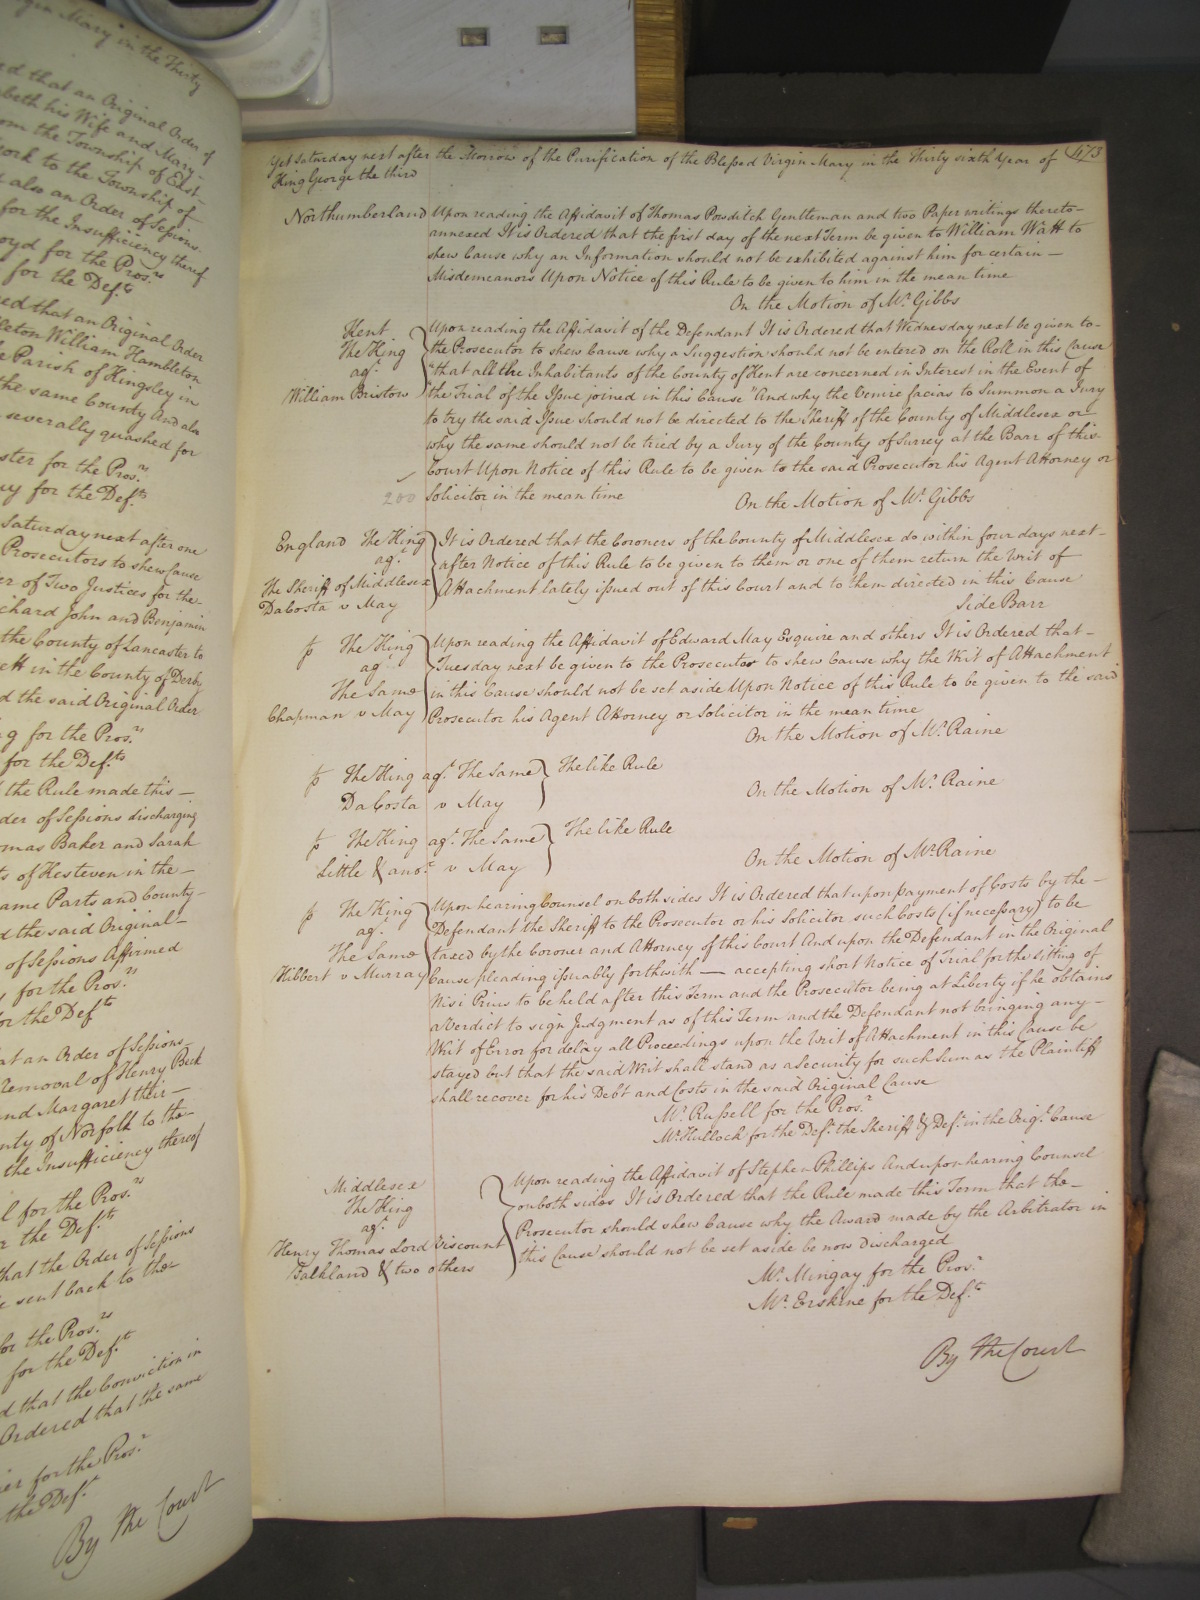 gin Mary in the Thirty
ed that an Original Order of
beth his Wife and Mary
om the Township of East
ork to the Township of
also an Order of Sessions
for the Insufficiency thereof
oyd for the Pros.rs
for the Def.ts
ed that an Original Order
leton William Hambleton
e Parish of Kingsley in
the same County And also
severally quashed for
ster for the Pros.rs
ay for the Def.ts
Saturday next after one
Prosecutors to shew Cause
er of Two Justices for the
chard John and Benjamin
the County of Lancaster to
ett in the County of Derby
d the said Original Order
g for the Pros.rs
for the Def.ts
the Rule made this
der of Sessions discharging
omas Baker and Sarah
ts of Kesteven in the
ame Parts and County
d the said Original
of Sessions Affirmed
for the Pros.rs
for the Def.ts
at an Order of Sessions
Removal of Henry Buck
nd Margaret their
nty of Norfolk to the
the Insufficiency thereof
l for the Pros.rs
r the Def.ts
that the Order of Sessions
e sent back to the
for the Pros.rs
for the Def.t
d that the Conviction in
Ordered that the same
er for the Pros.r
the Def.t
By the Court
Yet Saturday next after the Morrow of the Purification of the Blessed Virgin Mary in the Thirty sixth Year of 473
King George the third
Northumberland Upon reading the Affidavit of Thomas Powditch Gentleman and two Paper writings thereto
annexed It is Ordered that the first day of the next Term be given to William Watt to
shew Cause why an Information should not be exhibited against him for certain
Misdemeanors Upon Notice of this Rule to be given to him in the mean time
On the Motion of Mr. Gibbs
Kent Upon reading the Affidavit of the Defendant It is Ordered that Wednesday next be given to
The King the Prosecutor to shew Cause why a Suggestion should not be entered on the Roll in this Cause
ag.t "that all the Inhabitants of the County of Kent are concerned in Interest in the Event of
William Bristow "the Trial of the Issue joined in this Cause" And why the Venire facias to Summon a Jury
to try the said Issue should not be directed to the Sheriff of the County of Middlesex or
why the same should not be tried by a Jury of the County of Surrey at the Barr of this
Court Upon Notice of this Rule to be given to the said Prosecutor his Agent Attorney or
200 Solicitor in the mean time On the Motion of Mr. Gibbs
England The King It is Ordered that the Coroners of the County of Middlesex do within four days next
ag.t after Notice of this Rule to be given to them or one of them return the Writ of
The Sheriff of Middlesex Attachment lately issued out of this Court and to them directed in this Cause
DaCosta v May Side Barr
The King Upon reading the Affidavit of Edward May Esquire and others It is Ordered that
ag.t Tuesday next be given to the Prosecutor to shew Cause why the Writ of Attachment
The Same in this Cause should not be set aside Upon Notice of this Rule to be given to the said
Chapman v May Prosecutor his Agent Attorney or Solicitor in the mean time
On the Motion of Mr. Raine
The King ag.t The Same The like Rule
DaCosta v May On the Motion of Mr. Raine
The King ag.t The Same The like Rule
Little & ano.r v May On the Motion of Mr. Raine
The King Upon hearing Counsel on both sides It is Ordered that upon payment of Costs by the
ag.t Defendant the Sheriff to the Prosecutor or his Solicitor such Costs (if necessary) to be
The Same taxed by the Coroner and Attorney of this Court And upon the Defendant in the Original
Hibbert v Murray Cause pleading issuably forthwith — accepting short Notice of Trial for the sitting of
Nisi Prius to be held after this Term and the Prosecutor being at Liberty if he obtains
a Verdict to sign Judgment as of this Term and the Defendant not bringing any
Writ of Error for delay all Proceedings upon the Writ of Attachment in this Cause be
stayed but that the said Writ shall stand as a security for such Sum as the Plaintiff
shall recover for his Debt and Costs in the said Original Cause
Mr. Russell for the Pros.r
Mr. Hullock for the Def.t the Sheriff & Def.t in the Orig.l Cause
Middlesex Upon reading the Affidavit of Stephen Phillips And upon hearing Counsel
The King on both sides It is Ordered that the Rule made this Term that the
ag.t Prosecutor should shew Cause why the Award made by the Arbitrator in
Henry Thomas Lord Viscount this Cause should not be set aside be now discharged
Falkland & two others Mr. Mingay for the Pros.r
Mr. Erskine for the Def.ts
By the Court